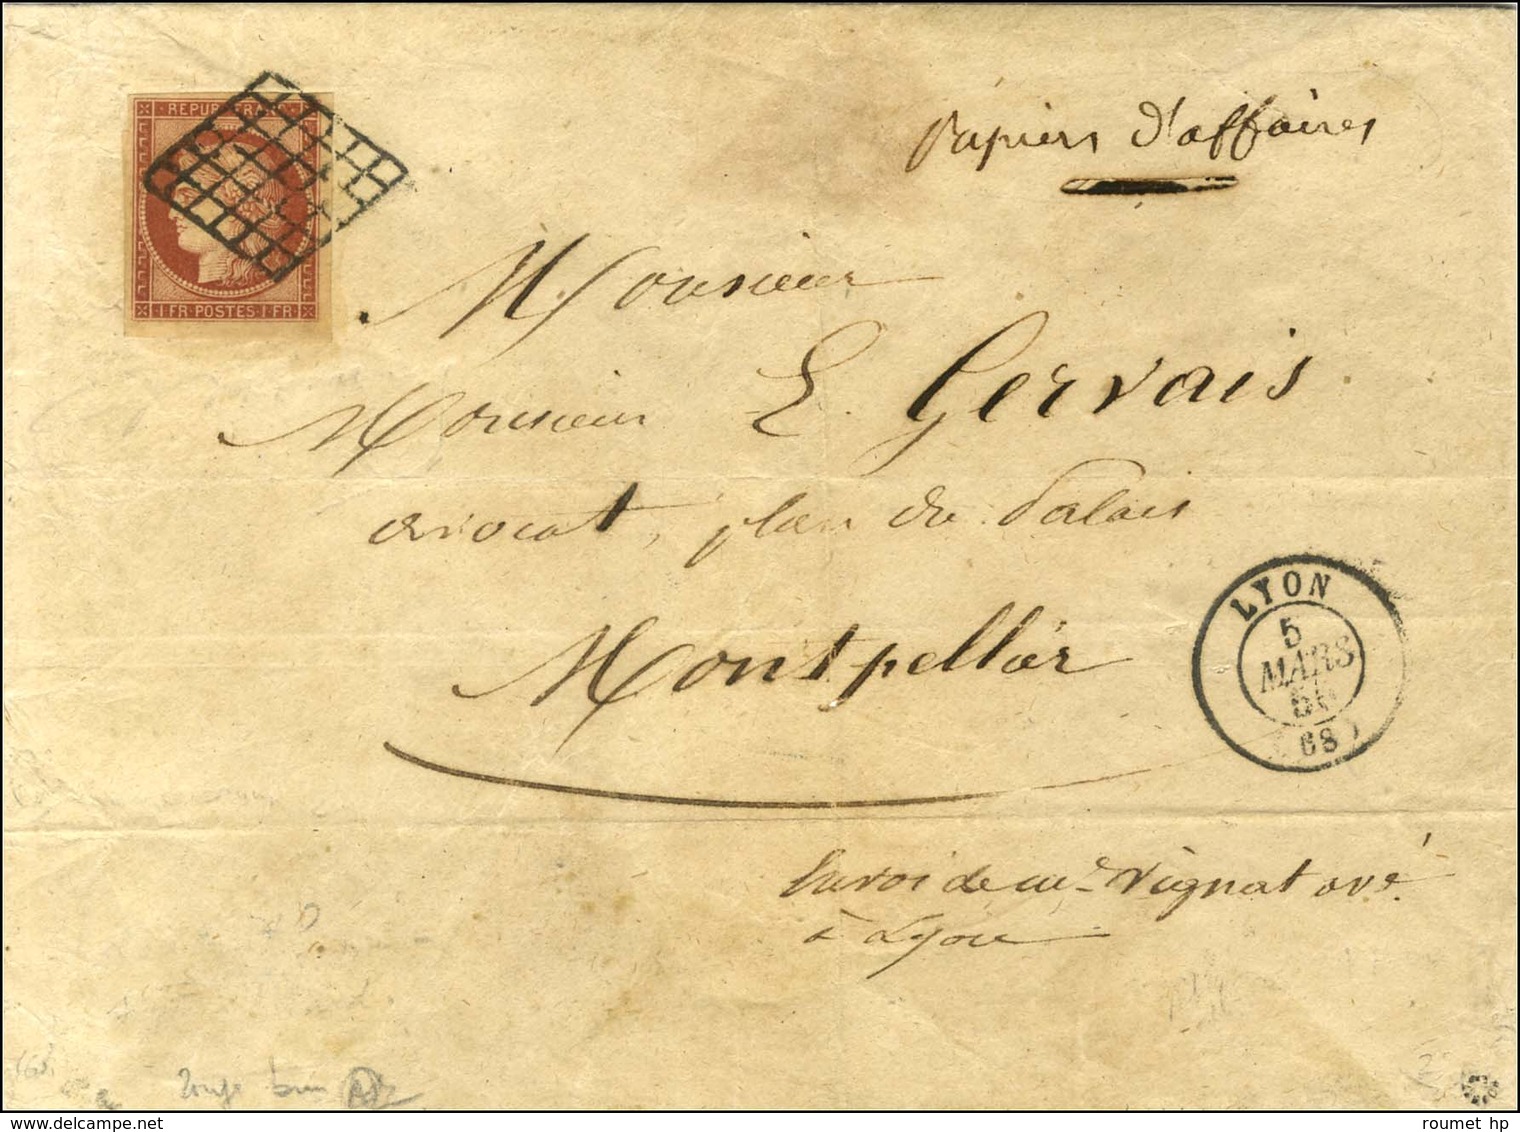 REPUB FRANC
1 FR · POSTES · 1 FR
Papiers d'affaires
Monsieur
Monsieur E. Gervais
avocat, place du Palais
Montpellier
LYON
5
MARS
(68)
Envoi de me Vignat avé
à Lyon
rouge brun
roumet hp